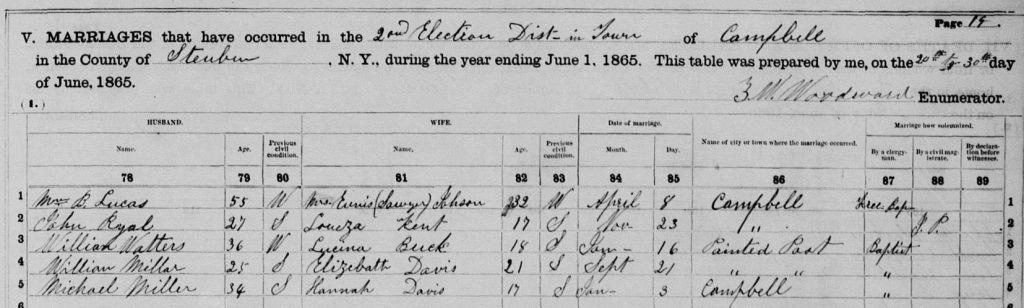 Page 19.
V. MARRIAGES that have occurred in the 2nd Election Dist in Town of Campbell
in the County of Steuben, N. Y., during the year ending June 1, 1865. This table was prepared by me, on the 20th & 30th day
of June, 1865. Woodward Enumerator.
(1.)
HUSBAND. WIFE. Date of marriage. Name of city or town where the marriage occurred. Marriage how solemnized.
Name. Age. Previous civil condition. Name. Age. Previous civil condition. Month. Day. By a clergyman. By a civil magistrate. By declaration before witnesses.
78 79 80 81 82 83 84 85 86 87 88 89
1 Wm B. Lucas 55 W Mrs Eunis (Sawyer) 32 W April 8 Campbell Free Bap 1
2 John Ryal 27 S Louza Kent 17 S Nov 23 " J. P. 2
3 William Watters 36 W Lucina Buck 18 S Jan 16 Painted Post Baptist 3
4 William Millar 25 S Elizebath Davis 21 S Sept 21 " " " 4
5 Michael Miller 34 S Hannah Davis 17 S Jan 3 Campbell " 5
6 6